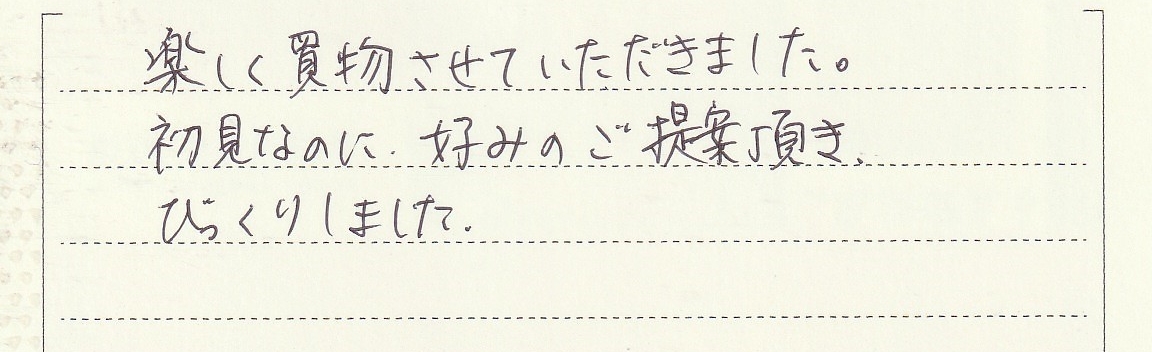 楽しく買物させていただきました。
初見なのに、好みのご提案頂き、
びっくりしました。